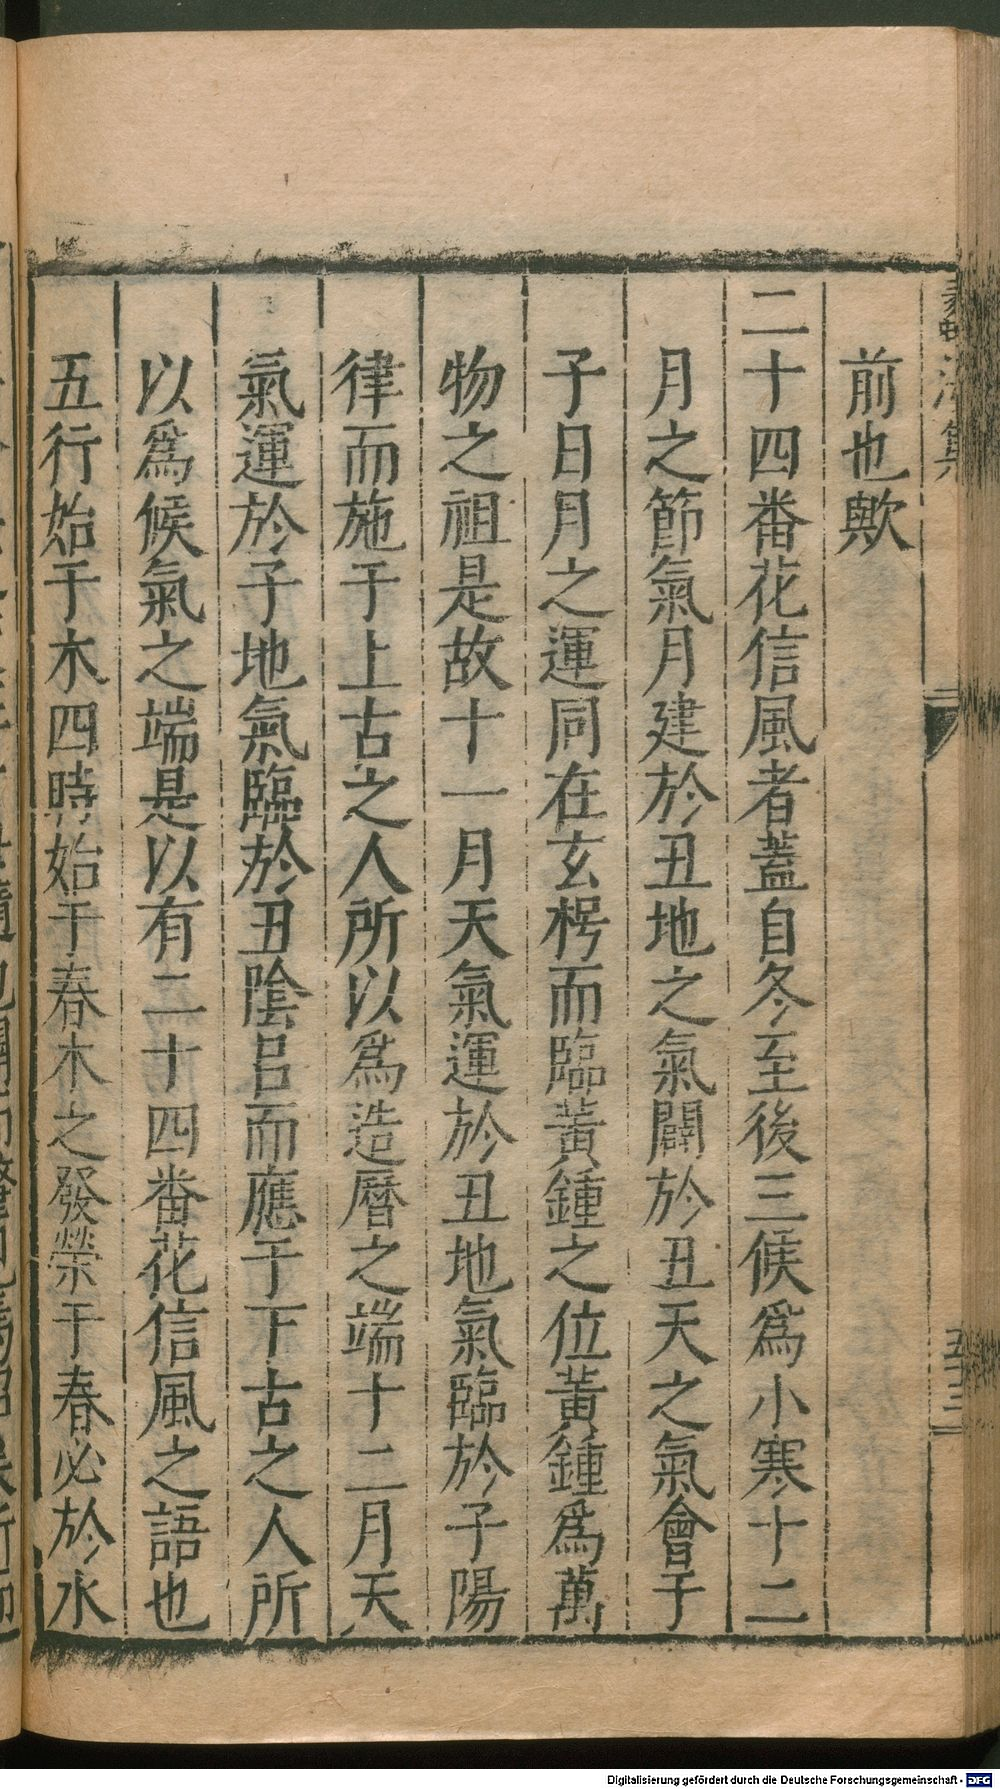 前也歟
二十四番花信風者蓋自冬至後三候爲小寒十二
月之節氣月建於丑地之氣闢於丑天之氣會于
子日月之運同在玄枵而臨黃鍾之位黃鍾爲萬
物之祖是故十一月天氣運於丑地氣臨於子陽
律而施于上古之人所以爲造曆之端十二月天
氣運於子地氣臨於丑陰呂而應于下古之人所
以爲候氣之端是以有二十四番花信風之語也
五行始于木四時始于春木之發榮于春必於水
五十三
Digitalisierung gefördert durch die Deutsche Forschungsgemeinschaft - DFG